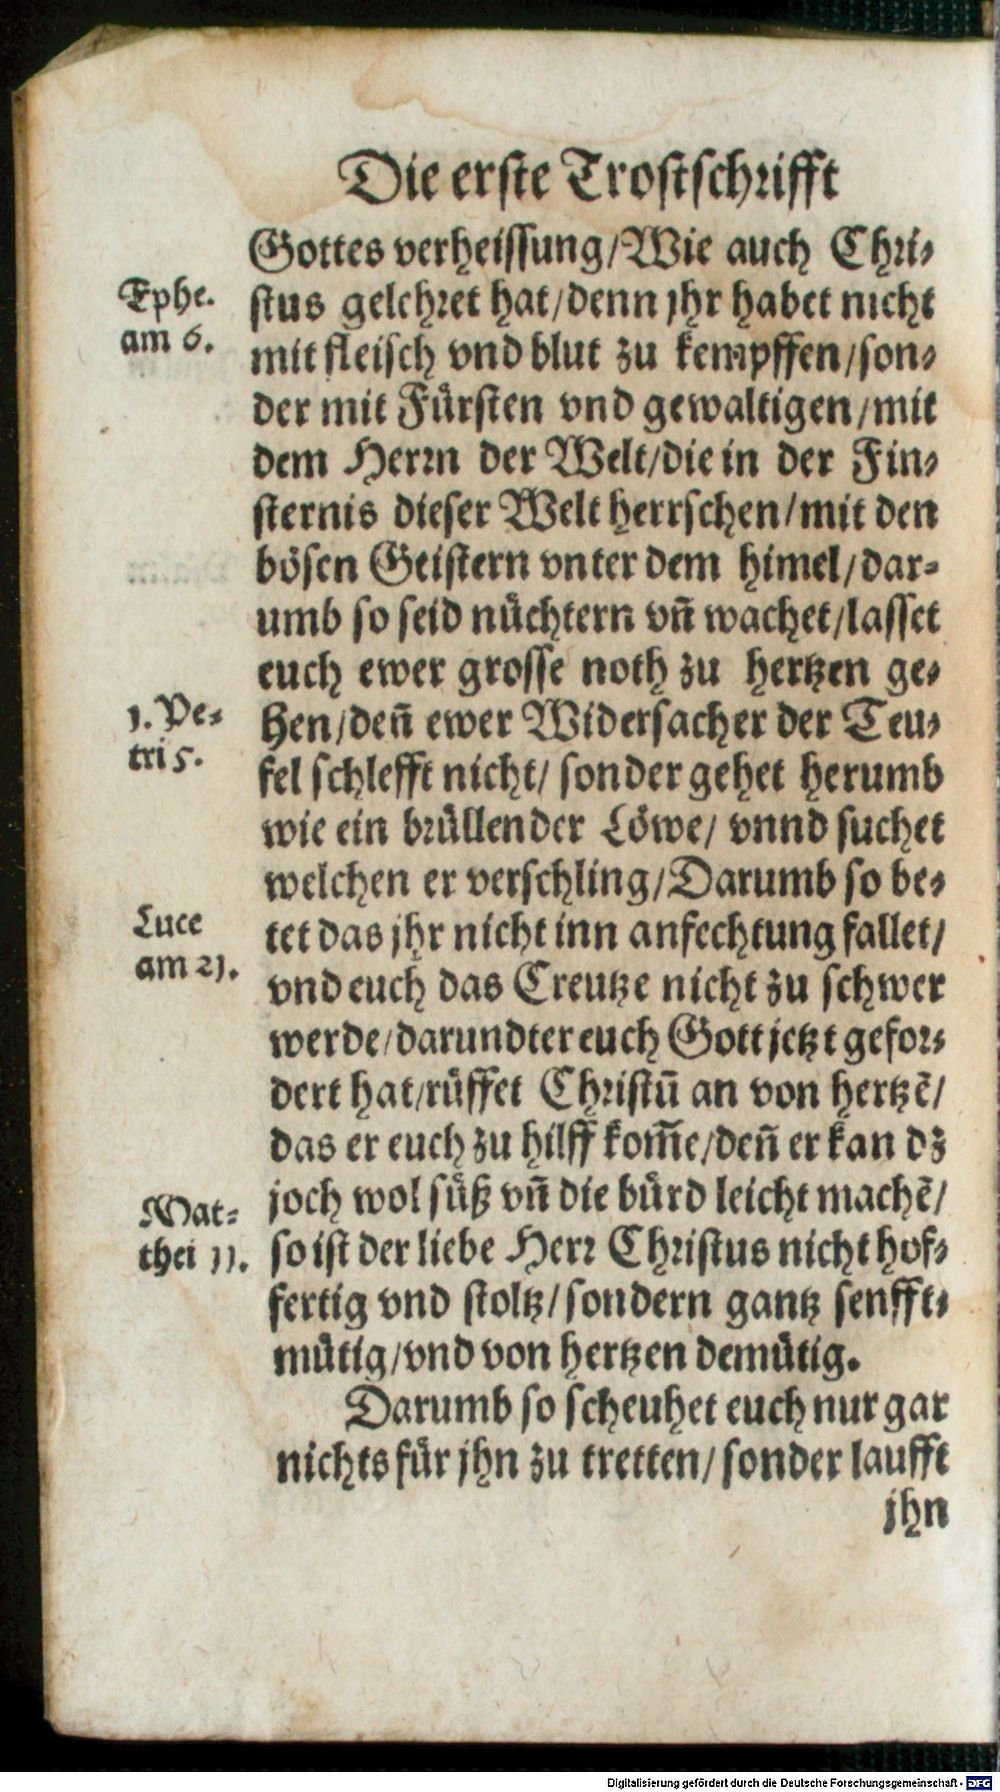 Die erste Trostschrifft
Gottes verheissung/Wie auch Chri-
Ephe.
am 6.
stus gelehret hat/denn jhr habet nicht
mit fleisch vnd blut zu kempffen/son-
der mit Fürsten vnd gewaltigen/mit
dem Herrn der Welt/die in der Fin-
sternis dieser Welt herrschen/mit den
bösen Geistern vnter dem himel/dar-
umb so seid nüchtern vñ wachet/lasset
euch ewer grosse noth zu hertzen ge-
1. Pe-
tri 5.
hen/deñ ewer Widersacher der Teu-
fel schlefft nicht/ sonder gehet herumb
wie ein brüllender Löwe/ vnnd suchet
welchen er verschling/Darumb so be-
Luce
am 21.
tet das jhr nicht inn anfechtung fallet/
vnd euch das Creutze nicht zu schwer
werde/darundter euch Gott jetzt gefor-
dert hat/rüffet Christū an von hertzē/
das er euch zu hilff kom̃e/deñ er kan dz
Mat-
thei 11.
joch wol süß vñ die bürd leicht machē/
so ist der liebe Herr Christus nicht hof-
fertig vnd stoltz/sondern gantz senfft-
mütig/vnd von hertzen demütig.
Darumb so scheuhet euch nur gar
nichts für jhn zu tretten/sonder laufft
jhn
Digitalisierung gefördert durch die Deutsche Forschungsgemeinschaft - DFG